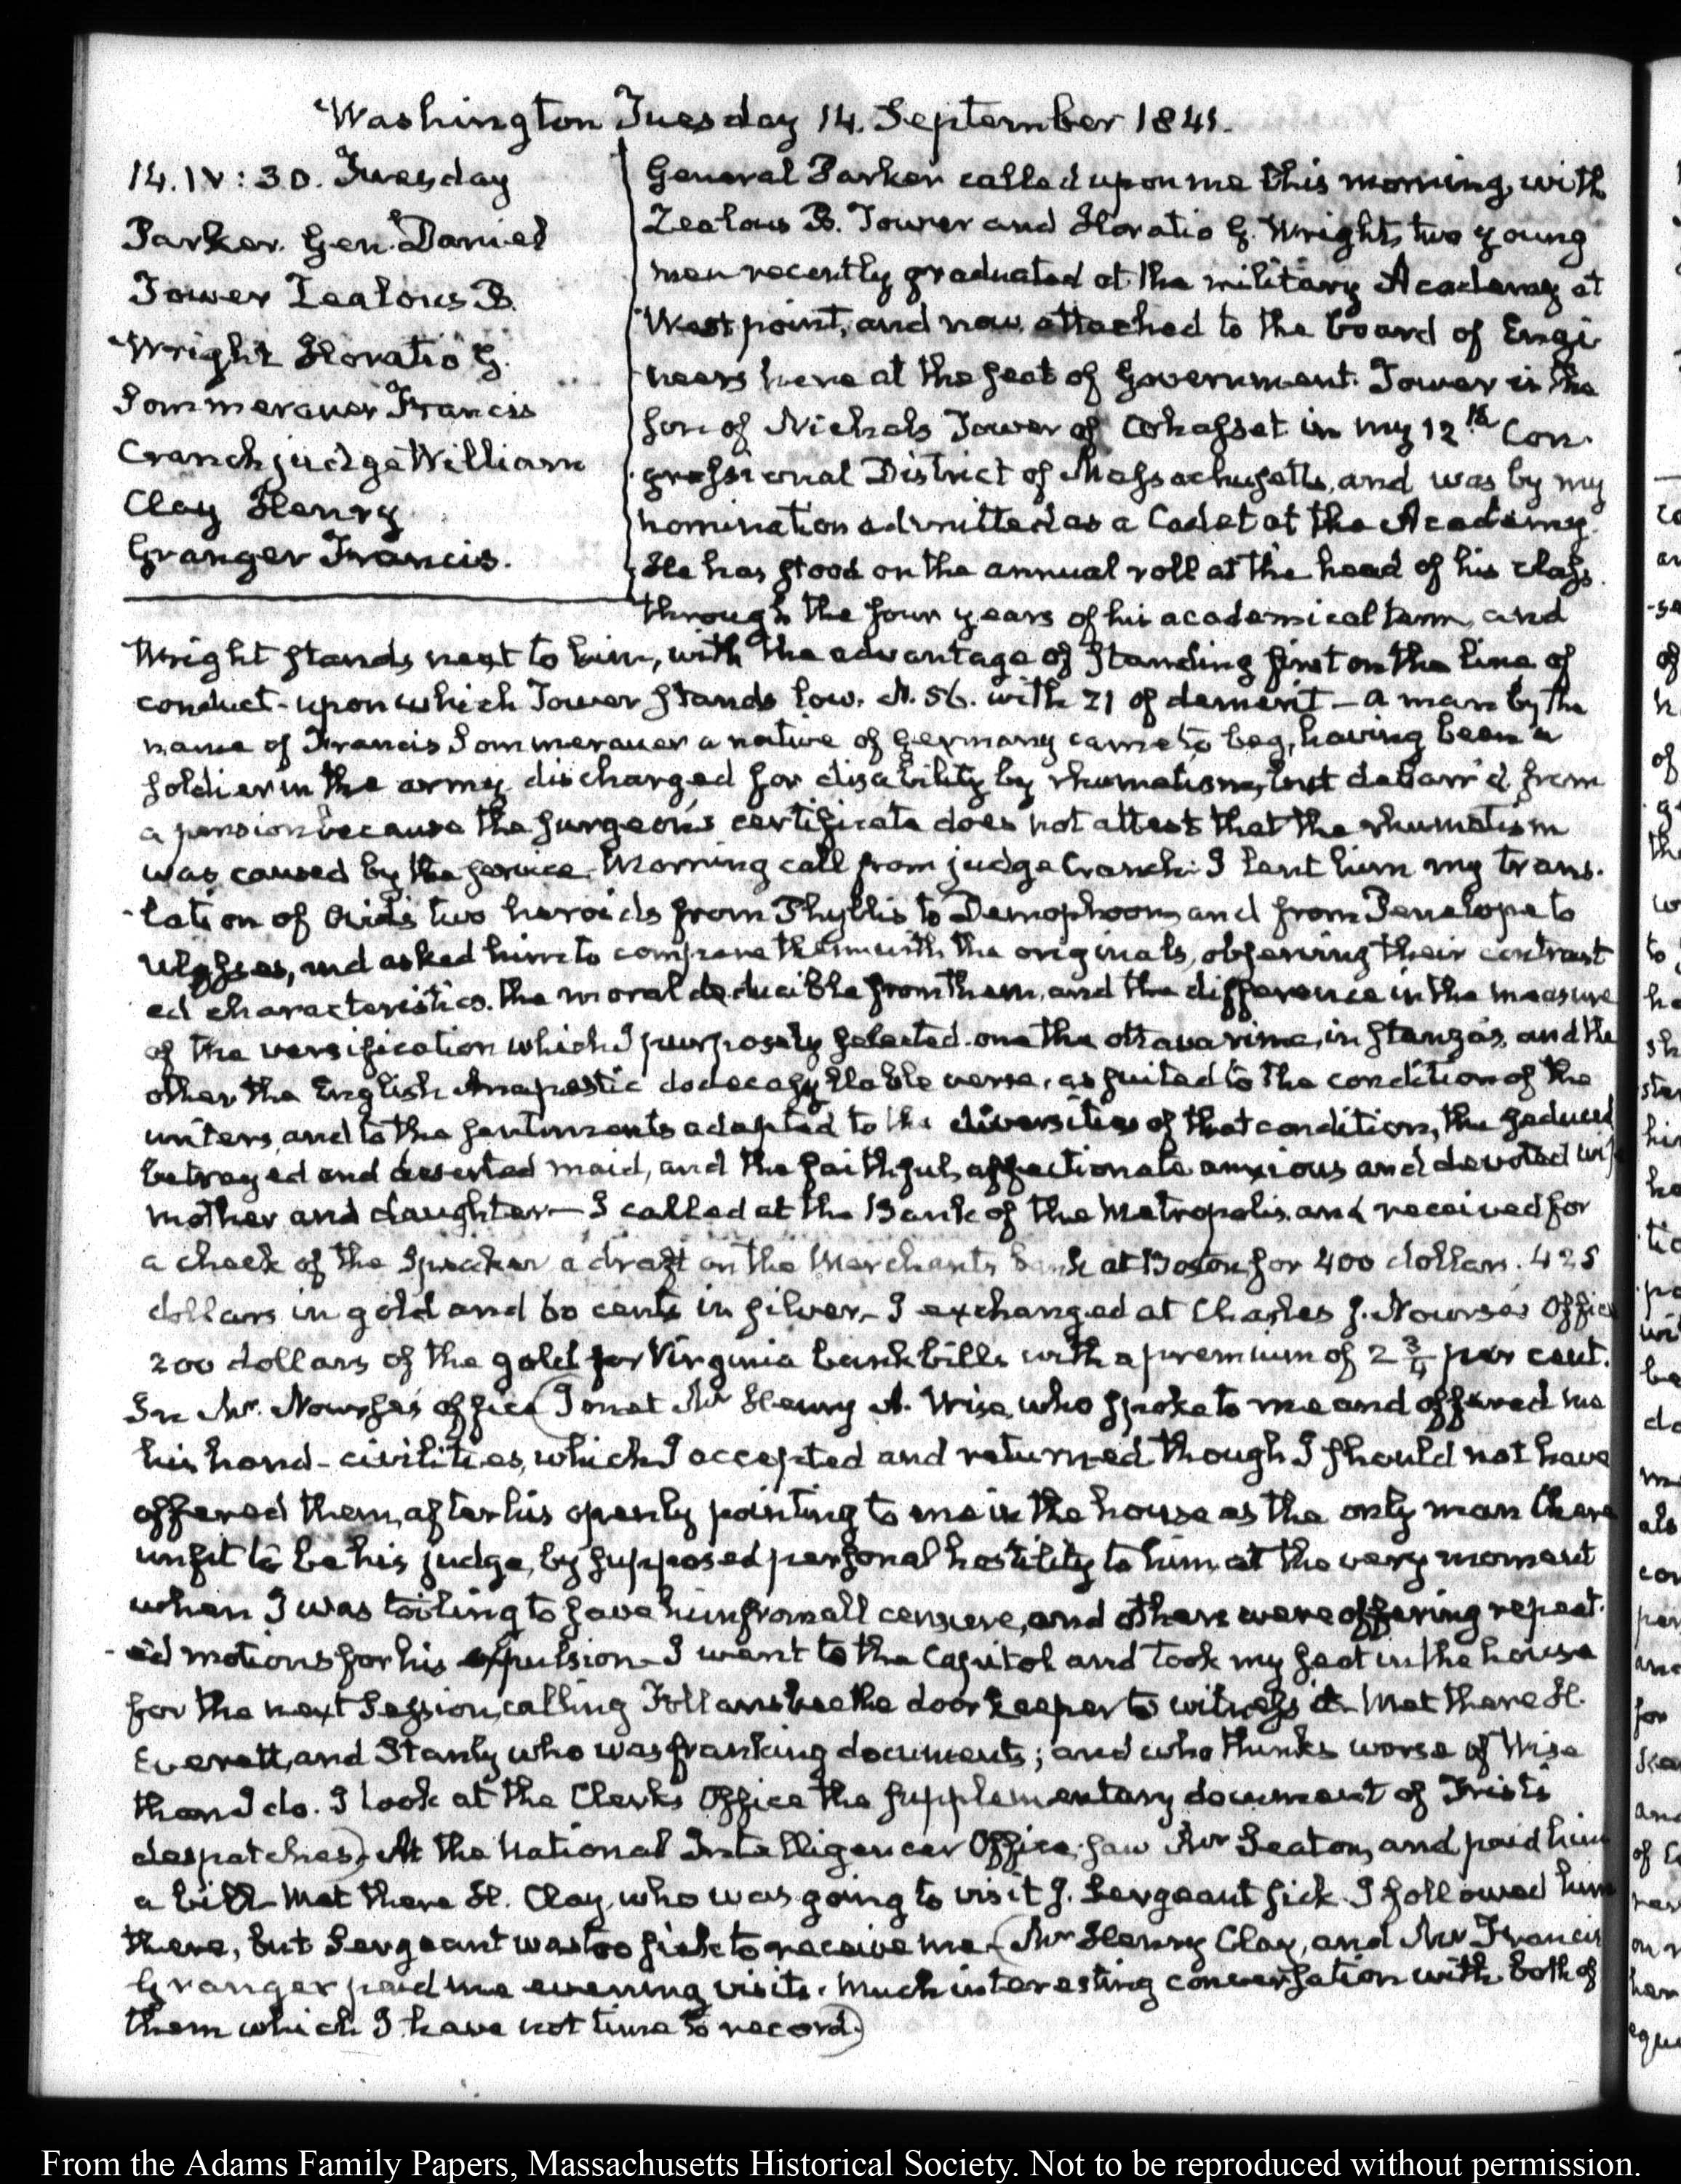 Washington Tuesday 14. September 1841.
14. IV:30. Tuesday
Parker. Gen. Daniel
Tower Zealous B.
Wright Horatio G.
Sommerauer Francis
Cranch judge William
Clay Henry
Granger Francis.
General Parker called upon me this morning, with
Zealous B. Tower and Horatio G. Wright, two young
men recently graduated at the military Academy at
West point, and now attached to the board of Engi-
neers here at the seat of Government. Tower is the
son of Nichols Tower of Cohasset in my 12th. Con-
gressional District of Massachusetts, and was by my
nomination admitted as a Cadet at the Academy.
He has stood on the annual roll at the head of his class
through the four years of his academical term, and
Wright stands next to him, with the advantage of standing first on the line of
conduct - upon which Tower stands low. N. 56. with 21 of demerit - a man by the
name of Francis Sommerauer a native of Germany came to beg, having been a
soldier in the army, discharged for disability by rhumatism, but debarr'd from
a pension because the surgeon's certificate does not attest that the rhumatism
was caused by the service. Morning call from judge Cranch. I lent him my trans-
-lation of Ovid's two heroids from Phyllis to Demophoon, and from Penelope to
Ulysses, and asked him to compare them with the originals, observing their contrast
ed characteristics. the moral deducible from them, and the difference in the measure
of the versification which I purposely selected. one the ottava rima, in stanzas, and the
other the English Anapestic dodecasyllable verse, as suited to the condition of the
writers, and to the sentiments adapted to the diversities of that condition, the seduced
betrayed and deserted maid, and the faithful, affectionate anxious and devoted wife
mother and daughter - I called at the Bank of the Metropolis. and received for
a check of the Speaker a draft on the Merchants bank at Boston for 400 dollars. 425
dollars in gold and 60 cents in silver - I exchanged at Charles J. Nourse's Office
200 dollars of the gold for Virginia bank bills with a premium of 2 3/4 per cent.
In Mr. Nourse's office (I met Mr Henry A. Wise, who spoke to me and offered me
his hand - civilities, which I accepted and returned though I should not have
offered them, after his openly pointing to me in the house as the only man there
unfit to be his judge, by supposed personal hostility to him, at the very moment
when I was toiling to save him from all censure, and others were offering repeat-
-ed motions for his expulsion - I went to the Capitol and took my seat in the house
for the next Session, calling Follansbee the door keeper to witness it - Met there H.
Everett, and Stanly who was franking documents; and who thinks worse of Wise
than I do. I took at the Clerks Office the supplementary document of Trist's
despatches) - At the National Intelligencer Office, saw Mr Seaton, and paid him
a bill - Met there H. Clay, who was going to visit J. Sergeant sick. I followed him
there, but Sergeant was too sick to receive me - (Mr Henry Clay, and Mr Francis
Granger paid me evening visits. Much interesting conversation with both of
them which I have not time to record.)
From the Adams Family Papers, Massachusetts Historical Society. Not to be reproduced without permission.